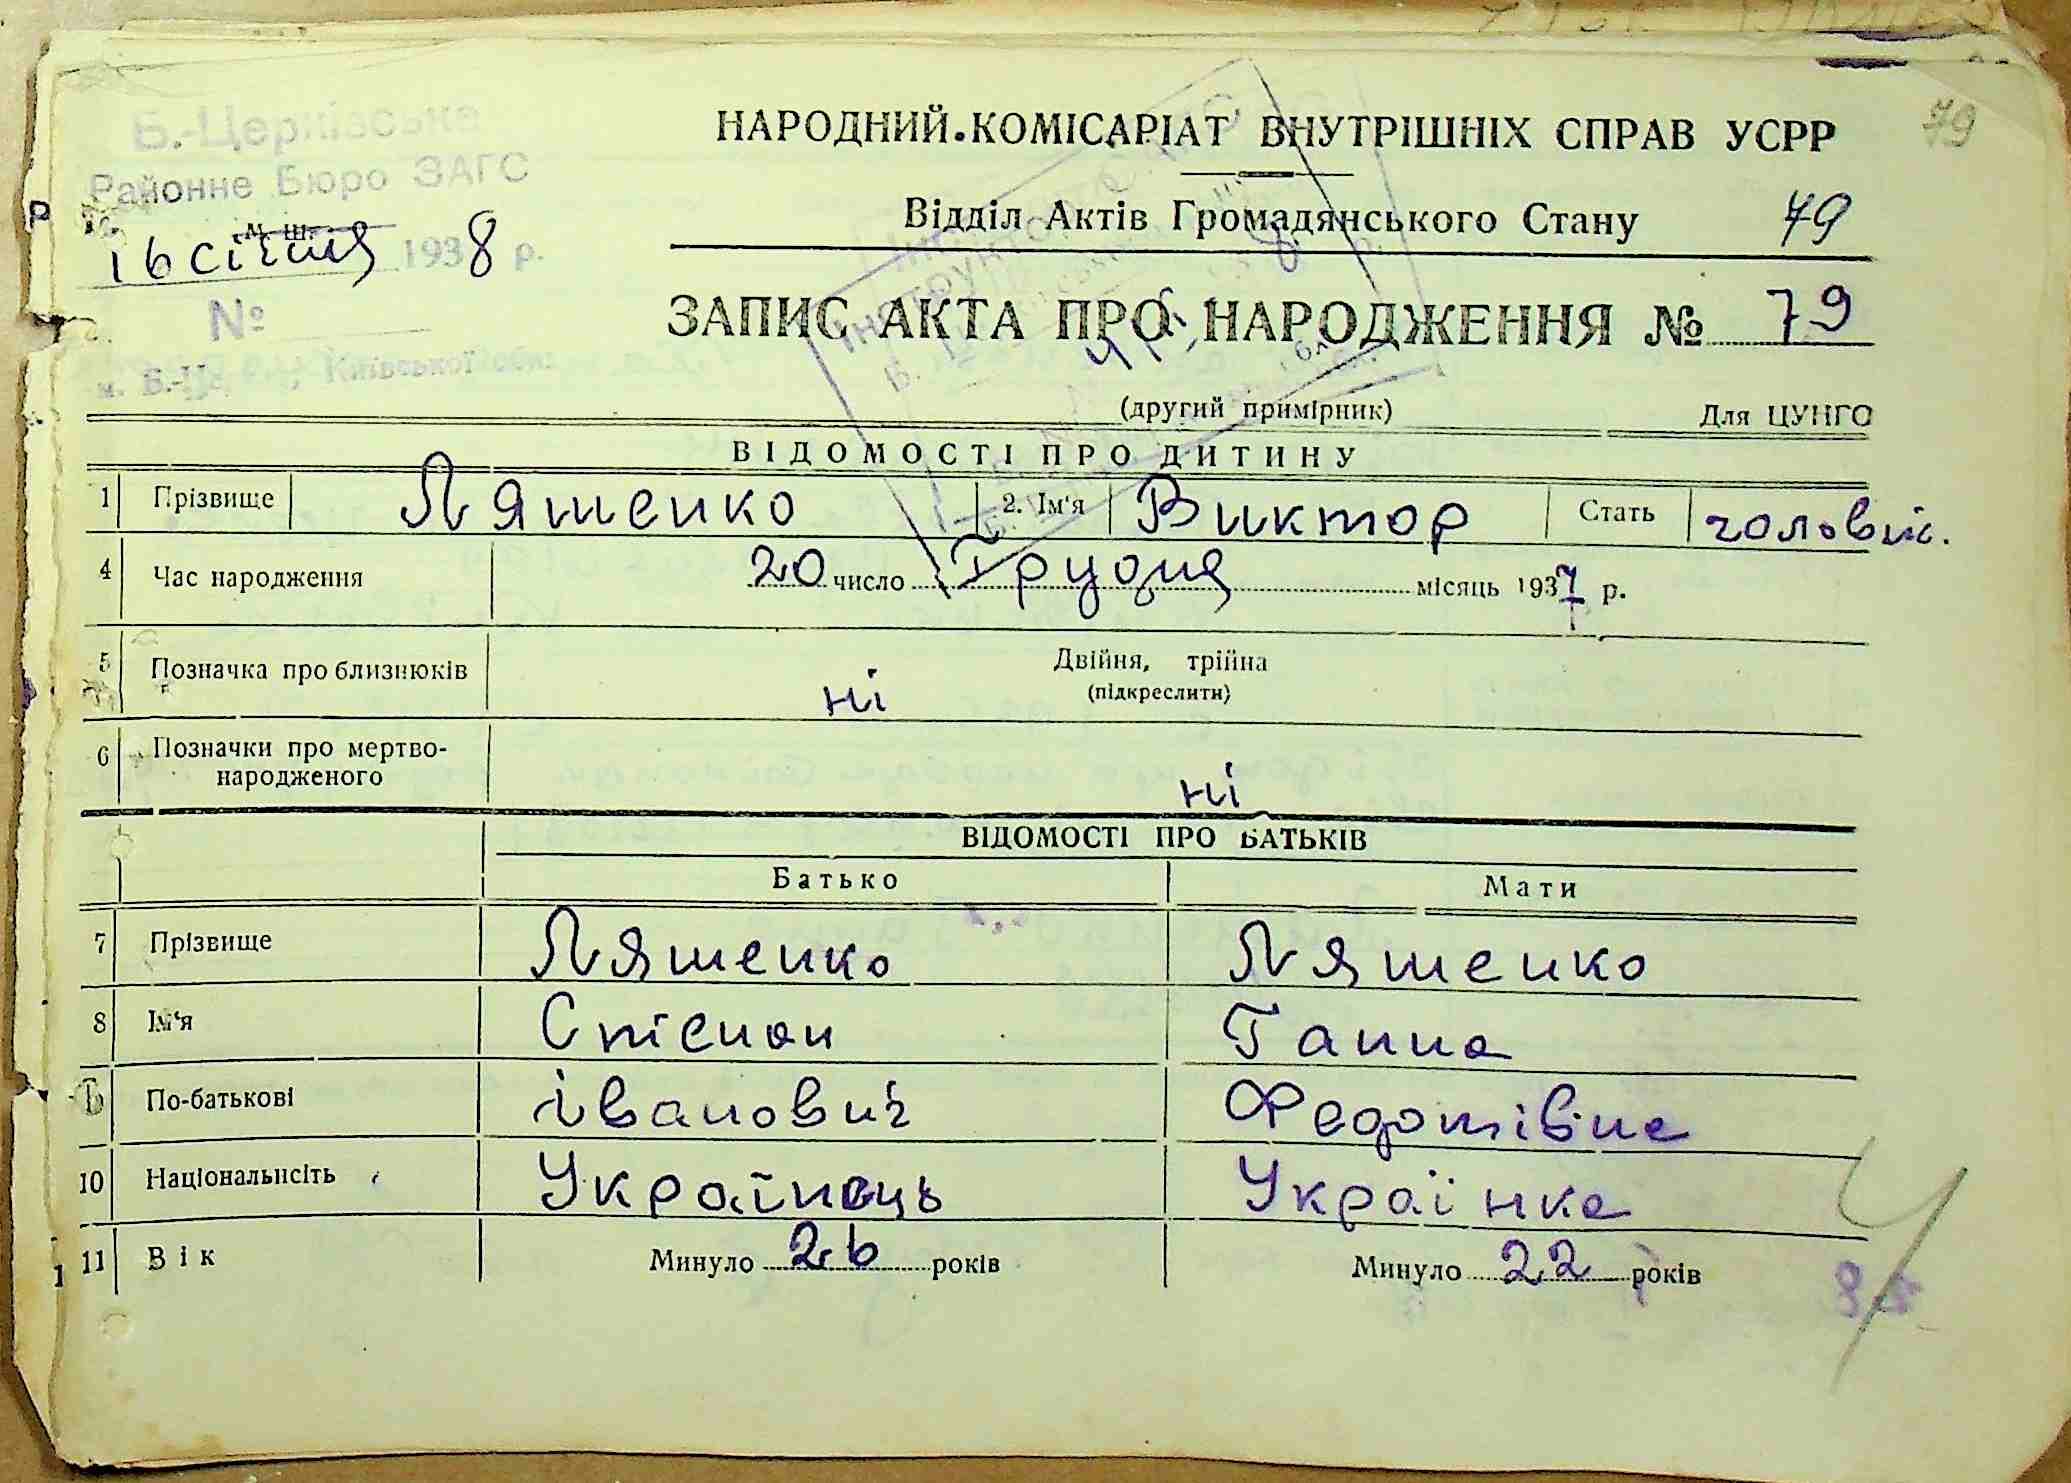 79
Б.-Церківська
Районне Бюро ЗАГС
16 січня 1938 р.
№
м. Б.-Ц. , Київської обл.
НАРОДНИЙ КОМІСАРІАТ ВНУТРІШНІХ СПРАВ УСРР
Відділ Актів Громадянського Стану 79
ЗАПИС АКТА ПРО НАРОДЖЕННЯ № 79
(другий примірник) Для ЦУНГО
ВІДОМОСТІ ПРО ДИТИНУ
1 Прізвище Ляшенко 2. Ім'я Виктор Стать чоловіч.
4 Час народження 20 число Грудня місяць 1937 р.
5 Позначка про близнюків ні Двійня, трійна
(підкреслити)
6 Позначки про мертво-
народженого ні
ВІДОМОСТІ ПРО БАТЬКІВ
Батько Мати
7 Прізвище Ляшенко Ляшенко
8 Ім'я Стєпан Ганна
По-батькові Іванович Федотівна
10 Національнсіть Українець Українка
11 Вік Минуло 26 років Минуло 22 років